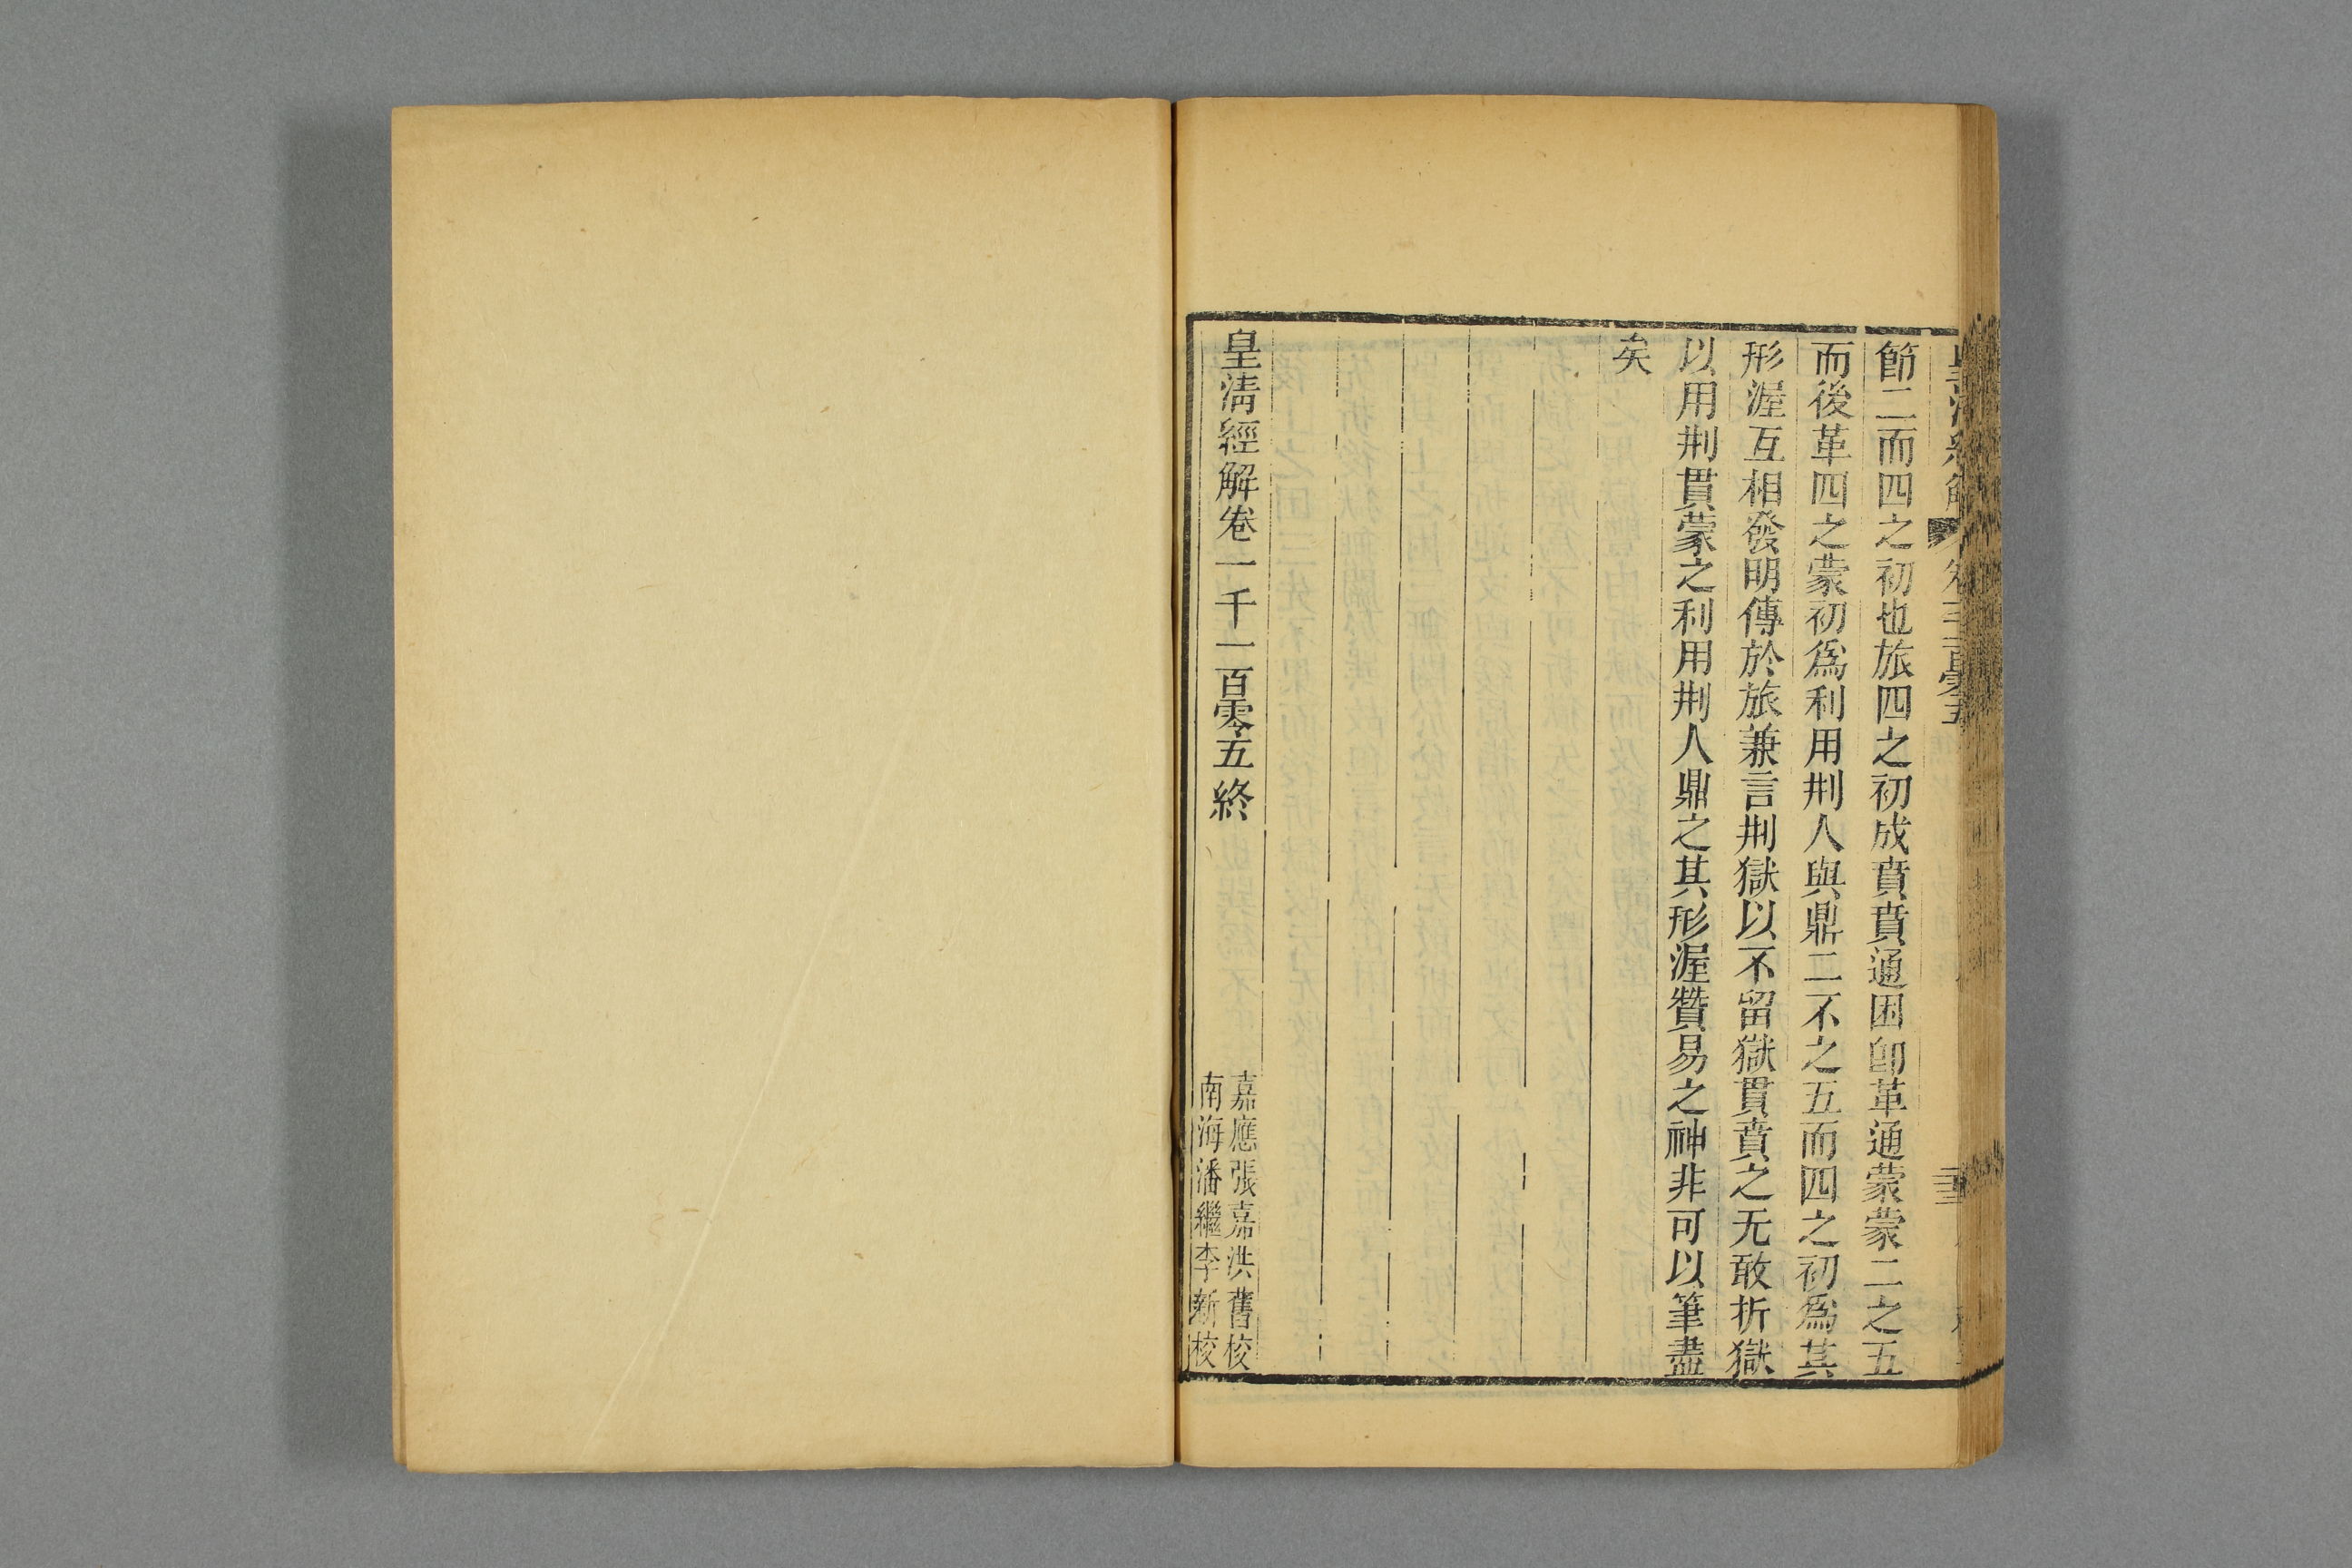 節二而四之初也旅四之初成賁賁通困卽革通蒙蒙二之五
而後革四之蒙初爲利用刑人與鼎二不之五而四之初爲其
形渥互相發明傳於旅兼言刑獄以不留獄貫賁之无敢折獄
以用刑貫蒙之利用刑人鼎之其形渥贊易之神非可以筆盡
矣
皇淸經解卷一千一百零五終
嘉應張嘉洪舊校
南海潘繼李新校